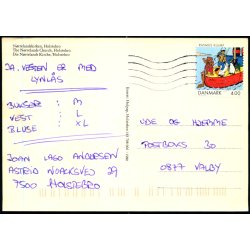 Nørrelandskirken, Holstebro
The Nørrelands Church, Holstebro
Die Nørrelands Kirche, Holstebro
JA, VESTEN ER MED
LYNLÅS
BUKSER : M
VEST : L
BLUSE : XL
JOAN LAGO ANDERSEN
ASTRID NOACKSVEJ 29
7500 HOLSTEBRO
DANMARK 4.00
UDE OG HJEMME
POSTBOKS 30
0877 VALBY